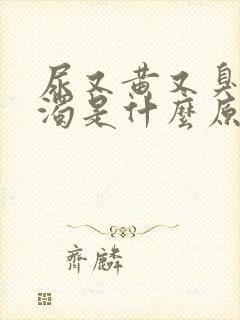 尿又黄又臭
濁是什麼原
齊麟